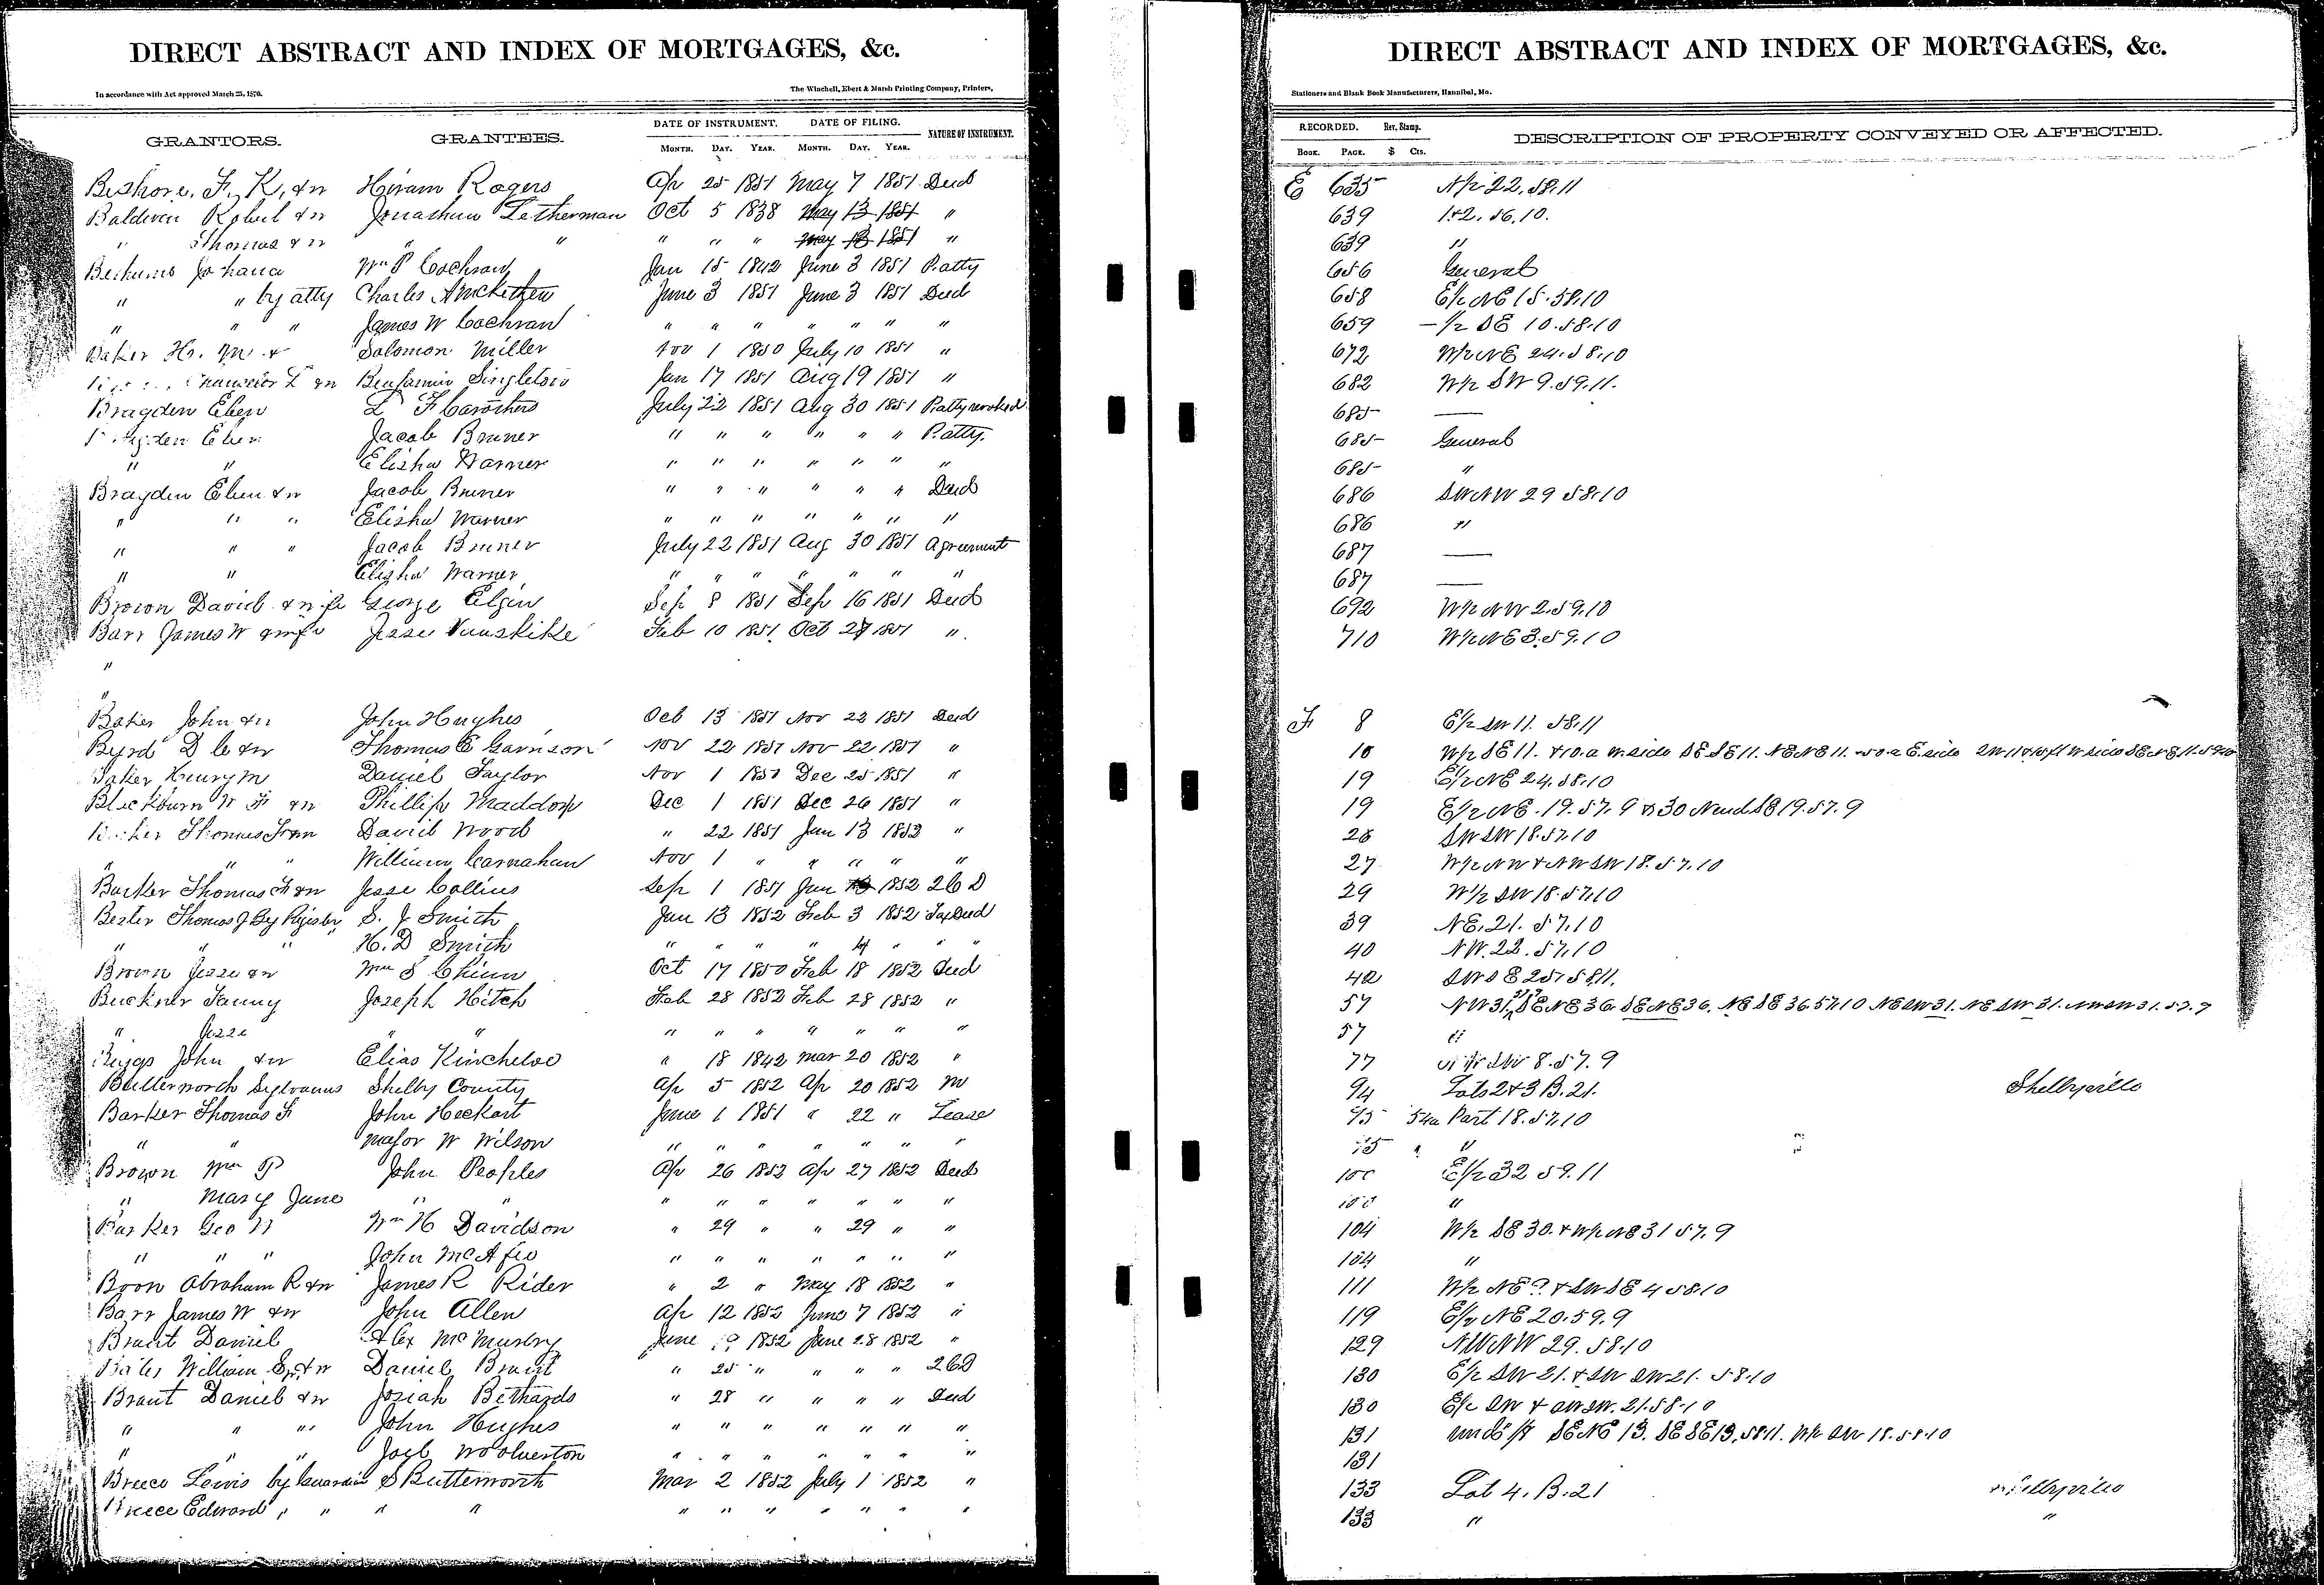 DIRECT ABSTRACT AND INDEX OF MORTGAGES, &c.
In accordance with Act approved March 25, 1870. The Winchell, Ebert & Marsh Printing Company, Printers,
GRANTORS. GRANTEES. DATE OF INSTRUMENT. DATE OF FILING. NATURE OF INSTRUMENT.
MONTH. DAY. YEAR. MONTH. DAY. YEAR.
Beshore, F. K, &w Hiram Rogers Ap 25 1851 May 7 1851 Deed
Baldwin Robert &w Jonathan Letherman Oct 5 1838 May 13 1851 "
" Thomas &w " " " " " May 13 1851 "
Johana Wm P Cochran Jan 15 1842 June 3 1851 P. atty
" " by atty Charles June 3 1851 June 3 1851 Deed
" " " James W Cochran " " " " " " "
Baker Hr. M & Solomon Miller Nov 1 1850 July 10 1851 "
Chancelor L &w Benjamin Singleton Jan 17 1851 Aug 19 1851 "
Bragden Eben L F Carothers July 22 1851 Aug 30 1851 P. atty revoked
Bragden Eben Jacob Bruner " " " " " " P. atty.
" " Elisha Warner " " " " " " "
Bragden Eben &w Jacob Bruner " " " " " " Deed
" " " Elisha Warner " " " " " " "
" " " Jacob Bruner July 22 1851 Aug 30 1851 Agreement
" " Elisha Warner " " " " " " "
Brown David & wife George Elgin Sep 8 1851 Sep 16 1851 Deed
Barr James W & wife Jesse Vanskike Feb 10 1851 Oct 27 1851 "
"
"
Baker John &w John Hughes Oct 13 1851 Nov 22 1851 Deed
Byrd D C &w Thomas E Garrison Nov 22 1851 Nov 22 1851 "
Baker Henry M Daniel Taylor Nov 1 1850 Dec 25 1851 "
Blackburn W F &w Phillip Maddox Dec 1 1851 Dec 26 1851 "
Barker Thomas F &w David Wood " 22 1851 Jan 13 1852 "
" " " William Carnahan Nov 1 " " " " "
Barker Thomas F &w Jesse Collins Sep 1 1851 Jan 13 1852 2 C D
Thomas J By Register S. J Smith Jan 13 1852 Feb 3 1852 Tax Deed
" " " H. D Smith " " " " 4 " " "
Brown Jesse &w Wm S Chinn Oct 17 1850 Feb 18 1852 Deed
Buckner Fanny Joseph Hitch Feb 28 1852 Feb 28 1852 "
" Jesse " " " " " " " " "
Biggs John &w Elias Kincheloe " 18 1842 Mar 20 1852 "
Butterworth Sylvanus Shelby County Ap 5 1852 Ap 20 1852 M
Barker Thomas F John Heckart June 1 1851 " 22 " Lease
" " Major W Wilson " " " " " " "
Brown Wm P John Peoples Ap 26 1852 Ap 27 1852 Deed
" Mary Jane " " " " " " " " "
Barker Geo W Wm H Davidson " 29 " " 29 " "
" " " John McAfee " " " " " " "
Boon Abraham R &w James R Rider " 2 " May 18 1852 "
Barr James W &w John Allen Ap 12 1852 June 7 1852 "
Brant Daniel Alex McMurtry June 19 1852 June 28 1852 "
Bates William &w Daniel Brant " 25 " " " " 2 C D
Brant Daniel &w Josiah Bethards " 28 " " " " Deed
" " " John Hughes " " " " " " "
" " " Joel Woolverton " " " " " " "
Breece Lewis by Guardian S Butterworth Mar 2 1852 July 1 1852 "
Breece Edward, " " " " " " " " " " "
DIRECT ABSTRACT AND INDEX OF MORTGAGES, &c.
Stationers and Blank Book Manufacturers, Hannibal, Mo.
RECORDED. Rev. Stamp. DESCRIPTION OF PROPERTY CONVEYED OR AFFECTED.
BOOK. PAGE. $ Cts.
E 635 N/2 22. 58. 11
639 1 & 2. 56. 10.
639 "
656 General
658 E/2 NE 15. 58. 10
659 — 1/2 SE 10. 58. 10
672 W/2 NE 24. 58. 10
682 W/2 SW 9. 59. 11.
685 ——
685 General
685 "
686 SW NW 29 58. 10
686 "
687 ——
687 ——
692 W/2 NW 2. 59. 10
710 W/2 NE 3. 59. 10
F 8 E/2 SW 11. 58. 11
10 W/2 SE 11. & 10. a W. side SE SE 11. NE NE 11. 50 a E. side
19 E/2 NE 24. 58. 10
19 E/2 NE. 19. 57. 9 & 30 N end SE 19. 57. 9
26 SW SW 18. 57. 10
27 W/2 NW & NW SW 18. 57. 10
29 W 1/2 SW 18. 57. 10
39 NE. 21. 57. 10
40 NW. 22. 57. 10
42 SW SE 25. 58. 11.
57 NW 31. SE NE 36. SE NE 36. NE SE 36. 57. 10 NE SW 31. NE SW 31. NW SW 31. 57. 9
57 "
77 SW 8. 57. 9
94 Lots 2 & 3 B. 21. Shelbyville
95 54a Part 18. 57. 10
95 " "
100 E/2 32 59. 11
100 "
104 W/2 SE 30. & W/2 NE 31 57. 9
104 "
111 W/2 NE 9 & SW SE 4 58. 10
119 E/2 NE 20. 59. 9
129 NW NW 29. 58. 10
130 E/2 SW 21. & SW SW 21. 58. 10
130 E/2 SW & SW SW. 21. 58. 10
131 SE NE 13. SE SE 13, 58. 11. W/2 SW 18. 58. 10
131
133 Lot 4. B. 21 Shelbyville
133 " "